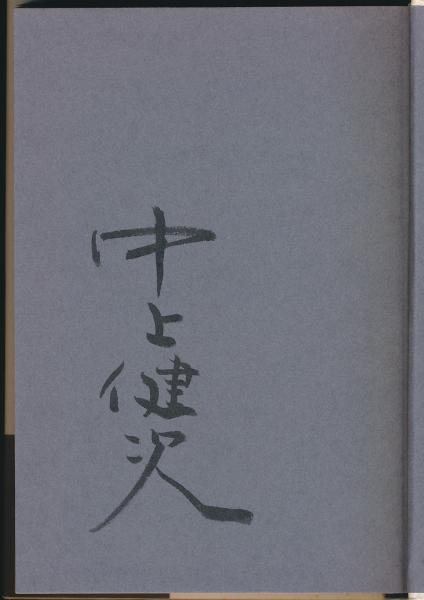 中上健次